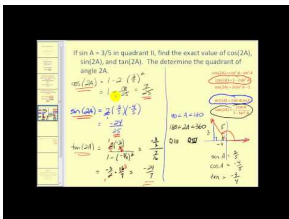 If sin A = 3/5 in quadrant II, find the exact value of cos(2A),
sin(2A), and tan(2A). The determine the quadrant of
angle 2A.
cos(2A) = 1 - 2 (3/5)²
= 1 - 18/25 = 7/25
sin(2A) = 2(3/5)(-4/5)
= -24/25
tan(2A) = 2(-3/4) / 1-(-3/4)² = -3/2 / 7/16
= -3/2 · 16/7 = -24/7
90 < A < 180
180 < 2A < 360
QIII QIV
sin A = 3/5
cos A = -4/5
tan = -3/4